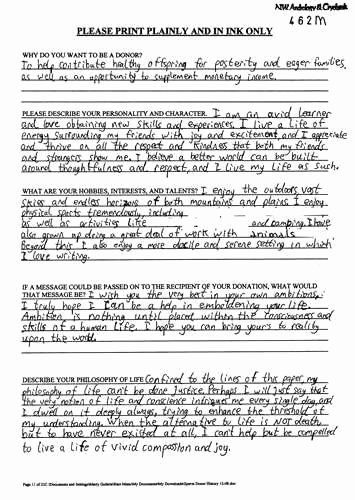 NW Andrology & Cryobank
462M
PLEASE PRINT PLAINLY AND IN INK ONLY
WHY DO YOU WANT TO BE A DONOR?
To help contribute healthy offspring for posterity and eager families,
as well as an opportunity to supplement monetary income.
PLEASE DESCRIBE YOUR PERSONALITY AND CHARACTER. I am an avid learner
and love obtaining new skills and experiences. I live a life of
energy surrounding my friends with joy and excitement, and I appreciate
and thrive on all the respect and kindness that both my friends
and strangers show me. I believe a better world can be built
around thoughtfulness and respect, and I live my life as such.
WHAT ARE YOUR HOBBIES, INTERESTS, AND TALENTS? I enjoy the outdoors, vast
skies and endless horizons of both mountains and plains. I enjoy
physical sports tremendously, including
as well as activities like and camping. I have
also grown up doing a great deal of work with animals
Beyond this I also enjoy a more docile and serene setting in which
I love writing.
IF A MESSAGE COULD BE PASSED ON TO THE RECIPIENT OF YOUR DONATION, WHAT WOULD
THAT MESSAGE BE? I wish you the very best in your own ambitions,
I truly hope I can be a help in emboldening your life.
Ambition is nothing until placed within the consciousness and
skills of a human life. I hope you can bring yours to reality
upon the world.
DESCRIBE YOUR PHILOSOPHY OF LIFE Confined to the lines of this paper, my
philosophy of life can't be done justice. Perhaps I will just say that
the very notion of life and conscience intrigues me every single day, and
I dwell on it deeply always, trying to enhance the threshold of
my understanding. When the alternative to life is not death
but to have never existed at all, I can't help but be compelled
to live a life of vivid compassion and joy.